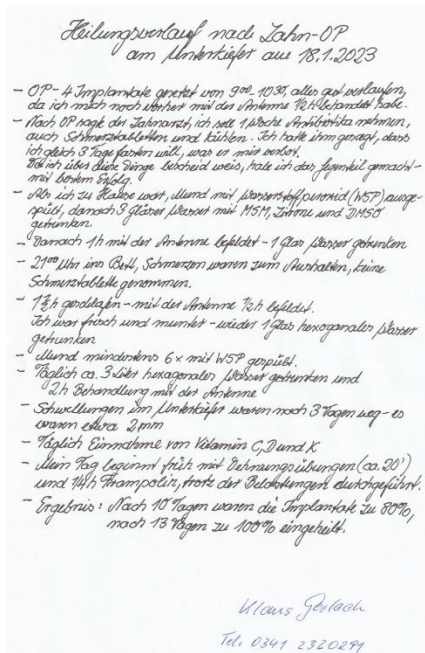 Heilungsverlauf nach Zahn-OP
am Unterkiefer am 18.1.2023
- OP - 4 Implantate gesetzt von 9⁰⁰-10³⁰, alles gut verlaufen,
da ich mich noch vorher mit der Antenne ½h behandelt habe.
- Nach OP sagte der Zahnarzt, ich soll 1 Woche Antibiotika nehmen,
auch Schmerztabletten und kühlen. Ich hatte ihm gesagt, dass
ich gleich 3 Tage fasten will, was er mir verbot.
Da ich über diese Dinge bescheid weis, habe ich das Gegenteil gemacht -
mit bestem Erfolg.
- Als ich zu Hause war, Mund mit Wasserstoffperoxid (WSP) ausge-
spült, danach 3 Gläser Wasser mit MSM, Zitrone und DMSO
getrunken.
- Danach 1h mit der Antenne befeldet - 1 Glas Wasser getrunken
- 21⁰⁰ Uhr ins Bett, Schmerzen waren zum Aushalten, keine
Schmerztablette genommen.
- geschlafen - mit der Antenne ½h befeldet.
Ich war frisch und munter - wieder 1 Glas hexagonales Wasser
getrunken
- Mund mindestens 6x mit WSP gespült.
- Täglich ca. 3 Liter hexagonales Wasser getrunken und
2h Behandlung mit der Antenne
- Schwellungen im Unterkiefer waren nach 3 Tagen weg - es
waren etwa 2mm
- Täglich Einnahme von Vitamin C, D und K
- Mein Tag beginnt früh mit Dehnungsübungen (ca. 20')
und ¼h Trampolin, trotz der Belastungen durchgeführt.
- Ergebnis: Nach 10 Tagen waren die Implantate zu 80%,
nach 13 Tagen zu 100% eingeheilt.
Klaus Gerlach
Tel. 0341 2320291